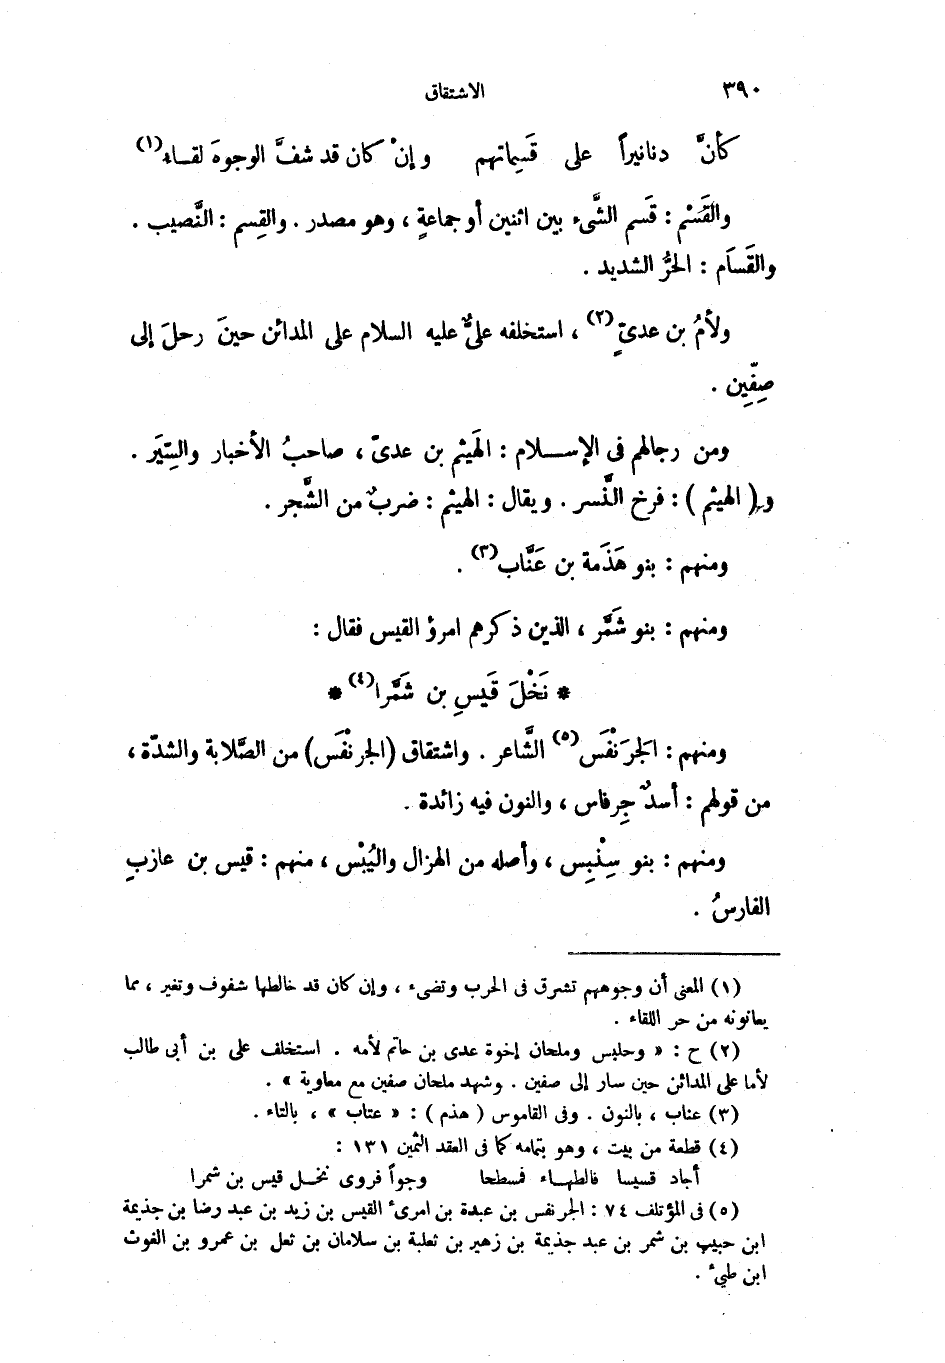 ٣٩٠ الاشتقاق
كأنَّ دنانيراً على قَسِماتهم وإنْ كان قد شفَّ الوجوهَ لقاء(١)
والقَسْم : قَسم الشَّىء بين اثنين أو جماعةٍ ، وهو مصدر . والقِسم : النَّصيب .
والقَسَام : الحرُّ الشديد .
ولأمُ بن عدىّ(٢) ، استخلفه علىٌّ عليه السلام على المدائن حينَ رحلَ إلى
صِفّين .
ومن رجالهم فى الإسلام : الهَيثم بن عدىّ ، صاحبُ الأخبار والسِّيَر .
و( الهيثم ) : فرخ النَّسر . ويقال : الهيثم : ضربٌ من الشَّجر .
ومنهم : بنو هَذَمة بن عَنَّاب(٣) .
ومنهم : بنو شَمَّر ، الذين ذكرهم امرؤ القيس فقال :
* نَخْلَ قَيسِ بن شَمَّرا(٤) *
ومنهم : الجَرَنْفَس(٥) الشَّاعر . واشتقاق (الجرنْفَس) من الصَّلابة والشدّة ،
من قولهم : أسدٌ جِرفاس ، والنون فيه زائدة .
ومنهم : بنو سِنْبِس ، وأصله من الهزال واليُبْس ، منهم : قيس بن عازبٍ
الفارسُ .
(١) المعنى أن وجوههم تشرق فى الحرب وتضىء ، وإن كان قد خالطها شفوف وتغير ، مما
يعانونه من حر اللقاء .
(٢) ح : « وحليس وملحان إخوة عدى بن حاتم لأمه . استخلف على بن أبى طالب
لأما على المدائن حين سار إلى صفين . وشهد ملحان صفين مع معاوية » .
(٣) عناب ، بالنون . وفى القاموس ( هذم ) : « عتاب » ، بالتاء .
(٤) قطعة من بيت ، وهو بتمامه كما فى العقد الثمين ١٣١ :
أجاد قسيسا فالطهاء فمسطحا وجواً فروى نخل قيس بن شمرا
(٥) فى المؤتلف ٧٤ : الجرنفس بن عبدة بن امرئ القيس بن زيد بن عبد رضا بن جذيمة
ابن حبيب بن شمر بن عبد جذيمة بن زهير بن ثعلبة بن سلامان بن ثعل بن عمرو بن الغوث
ابن طيئ .